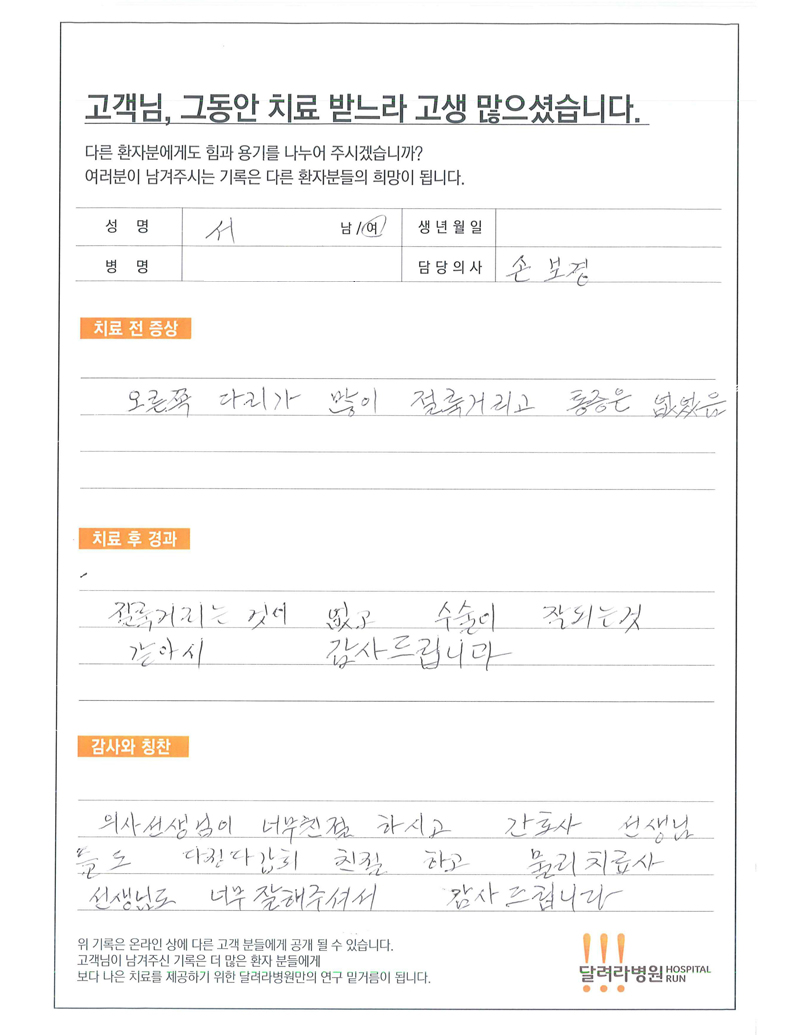 고객님, 그동안 치료 받느라 고생 많으셨습니다.
다른 환자분에게도 힘과 용기를 나누어 주시겠습니까?
여러분이 남겨주시는 기록은 다른 환자분들의 희망이 됩니다.
성 명 서 남/여 생년월일
병 명 담당의사 손보경
치료 전 증상
오른쪽 다리가 많이 절룩거리고 통증은 없었음
치료 후 경과
절룩거리는 것이 없고 수술이 잘되는것
같아서 감사드립니다
감사와 칭찬
의사선생님이 너무친절 하시고 간호사 선생님
들도 다정다감희 친절 하고 물리치료사
선생님도 너무 잘해주셔서 감사드립니다
위 기록은 온라인 상에 다른 고객 분들에게 공개 될 수 있습니다.
고객님이 남겨주신 기록은 더 많은 환자 분들에게
보다 나은 치료를 제공하기 위한 달려라병원만의 연구 밑거름이 됩니다.
달려라병원 HOSPITAL RUN